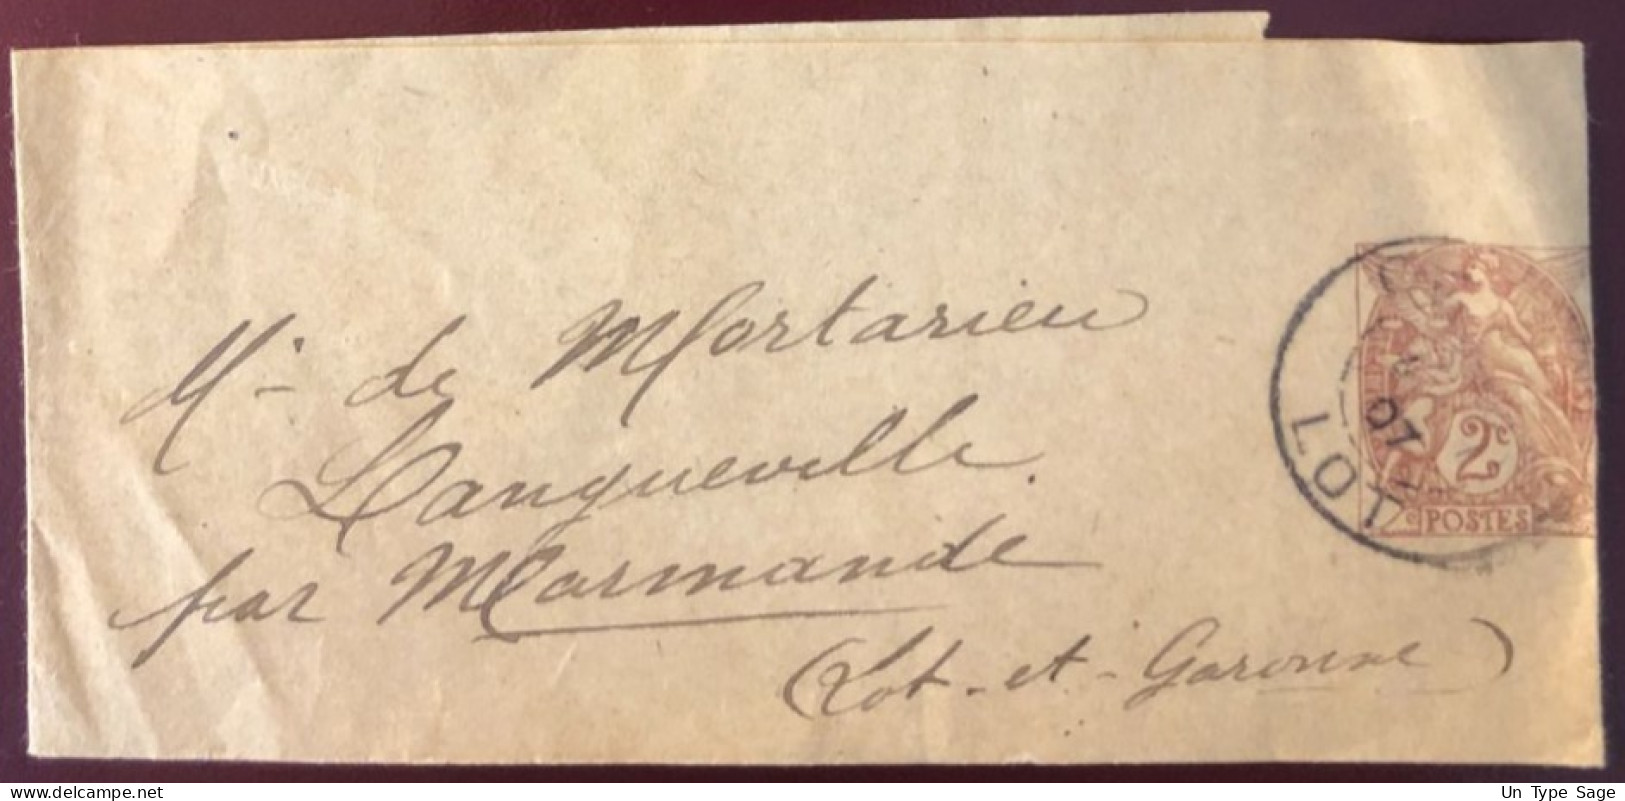 Mr de Mortarieu
Langueville
par Marmande
(Lot-et-Garonne)
LOT
07
2c
POSTES
www.delcampe.net
Un Type Sage